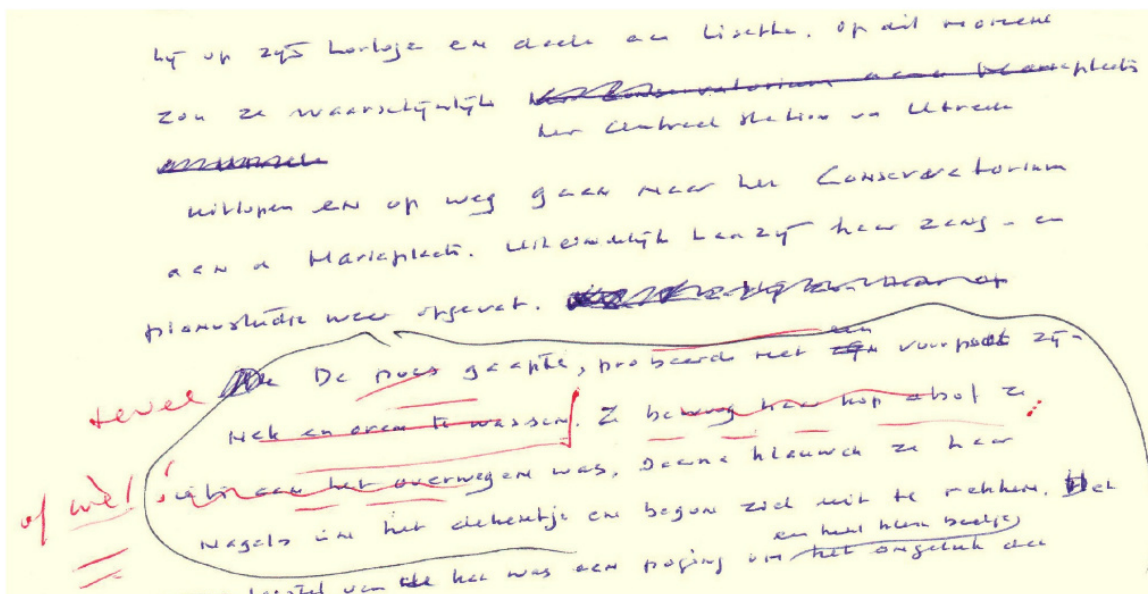 hij op zijn horloge en dacht aan Lisethe. Op dit moment
zou ze waarschijnlijk
het Centraal Station van Utrecht
uitlopen en op weg gaan naar het Conservatorium
aan de Mariaplaats. Uiteindelijk had zij haar zang- en
pianostudie weer opgevat.
een
teveel De poes gaapte, probeerde met voorpoot zij-
nek en oren te wassen. Ze bewoog haar kop alsof ze
of wèl! iets aan het overwegen was. Daarna klauwde ze haar
nagels in het dekentje en begon zich uit te rekken. Het
een heel klein beetje
van de was een poging om het ongeluk